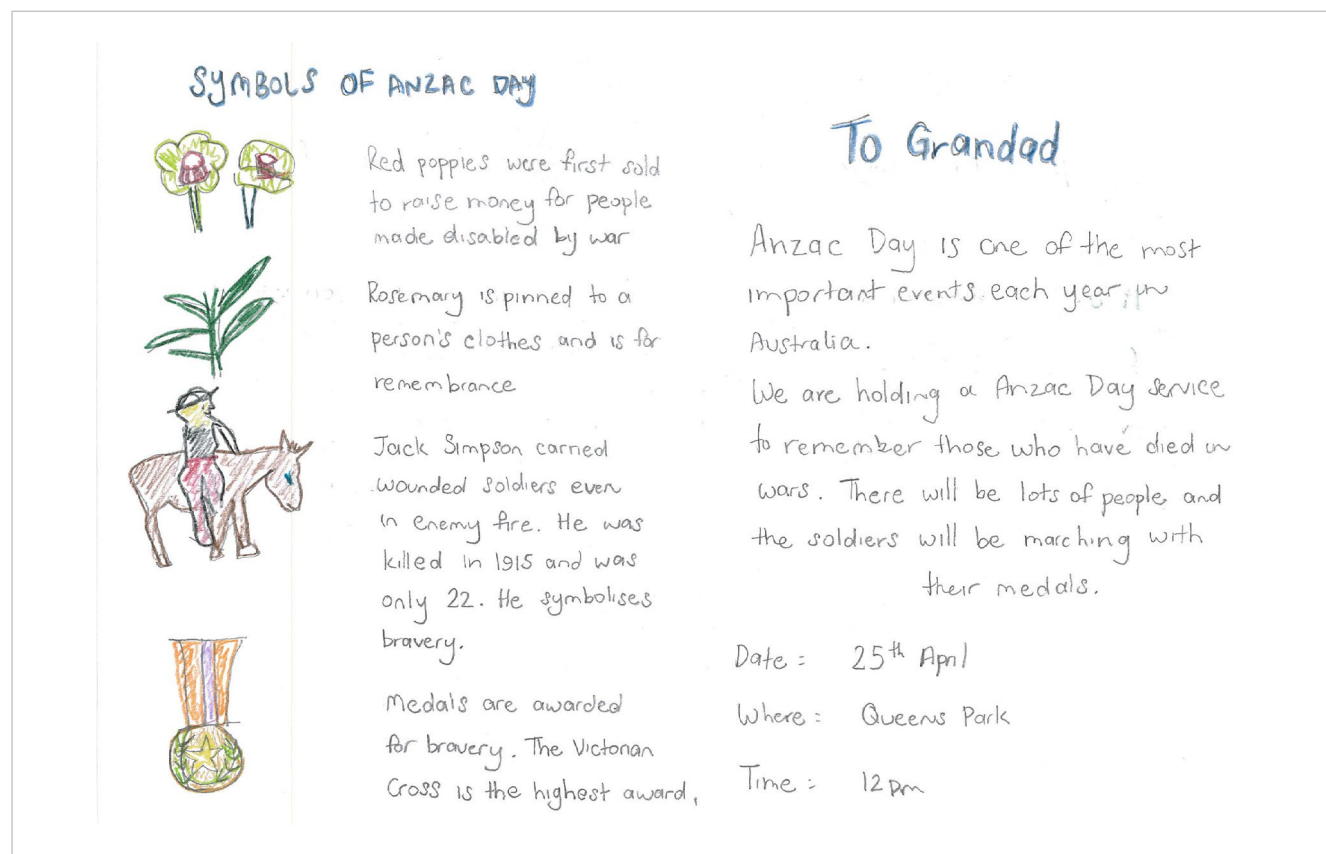 SYMBOLS OF ANZAC DAY
Red poppies were first sold
to raise money for people
made disabled by war
Rosemary is pinned to a
person's clothes and is for
remembrance
Jack Simpson carried
wounded soldiers even
in enemy fire. He was
killed in 1915 and was
only 22. He symbolises
bravery.
Medals are awarded
for bravery. The Victorian
Cross is the highest award,
To Grandad
Anzac Day is one of the most
important events each year in
Australia.
We are holding a Anzac Day service
to remember those who have died in
wars. There will be lots of people and
the soldiers will be marching with
their medals.
Date: 25th April
Where: Queens Park
Time: 12pm